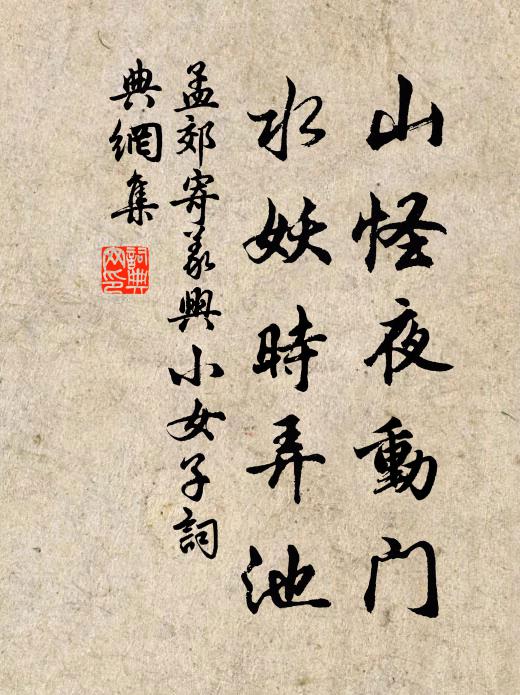 山怪夜動门
水妖時弄池
孟郊寄义興小女子詞
典網集
詞典